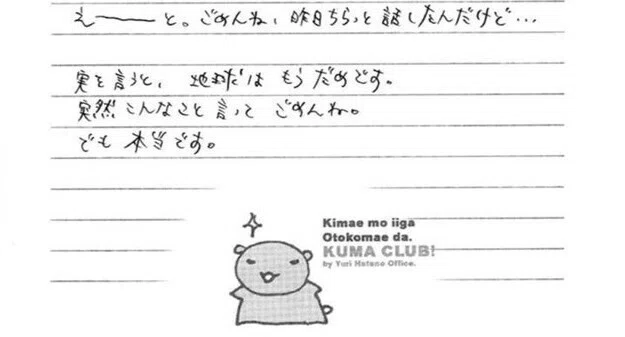 えーーーと。ごめんね、昨日ちらっと話したんだけど…
実を言うと、地球はもうだめです。
突然こんなこと言ってごめんね。
でも本当です。
Kimae mo iiga
Otokomae da.
KUMA CLUB!
by Yuri Hatano Office.